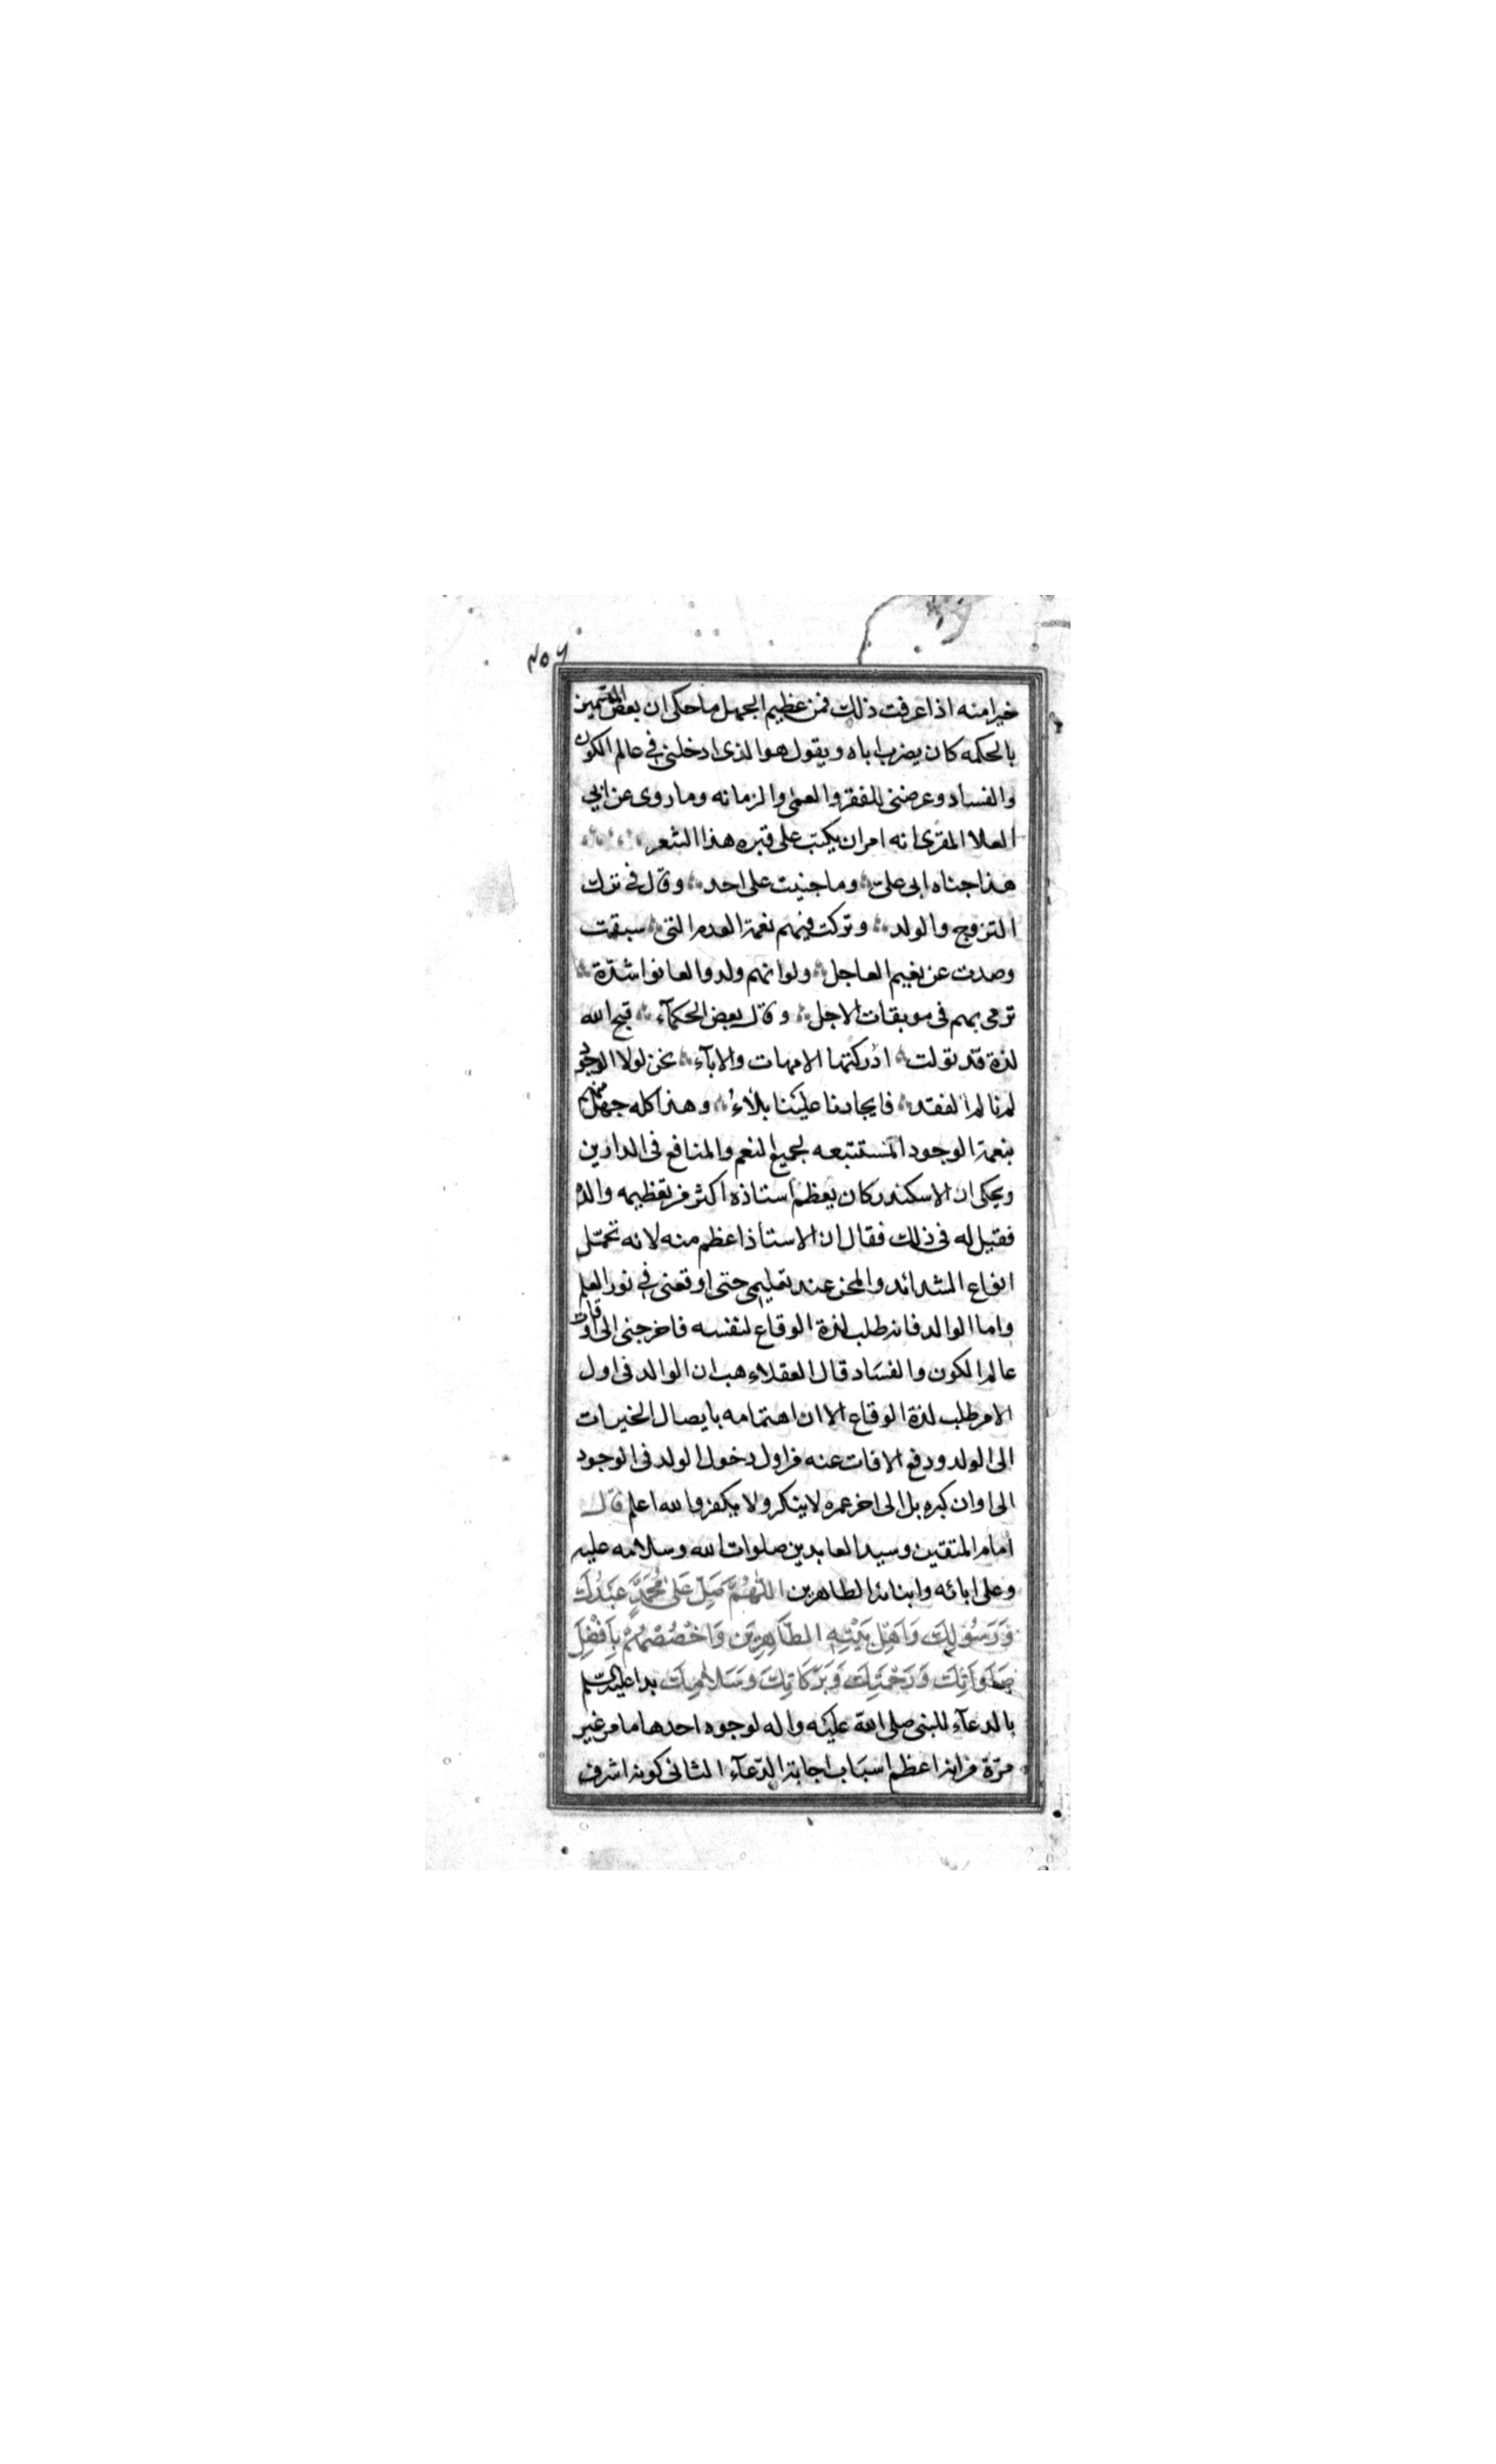 ٢٥٦
خيرا منه اذا عرفت ذلك فمن عظيم الجهل ما حكى ان بعض المتسمين
بالحكمه كان يضرب اباه ويقول هو الذى ادخلنى فى عالم الكون
والفساد وعرضنى للفقر والعمى والزمانه وما روى عن ابى
العلا المقرى انه امر ان يكتب على قبره هذا الشعر
هذا جناه ابى على وما جنيت على احد وقال فى ترك
التزوج والولد وتركت فيهم نعمة العدم التى سبقت
وصدت عن نعيم العاجل ولو انهم ولدوا لعانوا شدّة
ترمى بهم فى موبقات الاجل وقال بعض الحكمآء قبح الله
لذة قد تولت ادركتها الامهات والابآء نحن لولا الوجود
لم نالم الفقد فايجادنا علينا بلاءُ وهذا كله جهل منهم
بنعمة الوجود المستتبعه لجميع النعم والمنافع فى الدارين
ويحكى ان الاسكندر كان يعظم استاذه اكثر من تعظيمه والده
فقيل له فى ذلك فقال ان الاستاذ اعظم منه لانه تحمّل
انواع الشدائد والمحن عند تعليمى حتى اوقعنى فى نور العلم
واما الوالد فانه طلب لذة الوقاع لنفسه فاخرجنى الى افات
عالم الكون والفسَاد قال العقلاء هب ان الوالد فى اول
الامر طلب لذة الوقاع الا ان اهتمامه بايصال الخيرات
الى الولد ودفع الافات عنه من اول دخول الولد فى الوجود
الى اوان كبره بل الى اخر عمره لا ينكر ولا يكفر والله اعلم قال
امام المتقين وسيد العابدين صلوات الله وسلامه عليه
وعلى ابائه وابنائه الطاهرين اللّٰهُمَّ صَلِّ عَلىٰ مُحَمَّدٍ عَبْدِكَ
وَرَسُولِكَ وَاَهْلِ بَيْتِهِ الطّاهِرِينَ وَاخْصُصْهُمْ بِاَفْضَلِ
صَلَوَاتِكَ وَرَحْمَتِكَ وَبَرَكَاتِكَ وَسَلَامِكَ بدا عليه السلم
بالدعآء للنبى صلى الله عليه واله لوجوه احدها ما مر غير
مرّة من انه اعظم اسبَاب اجابة الدّعآء الثانى كونه اشرف